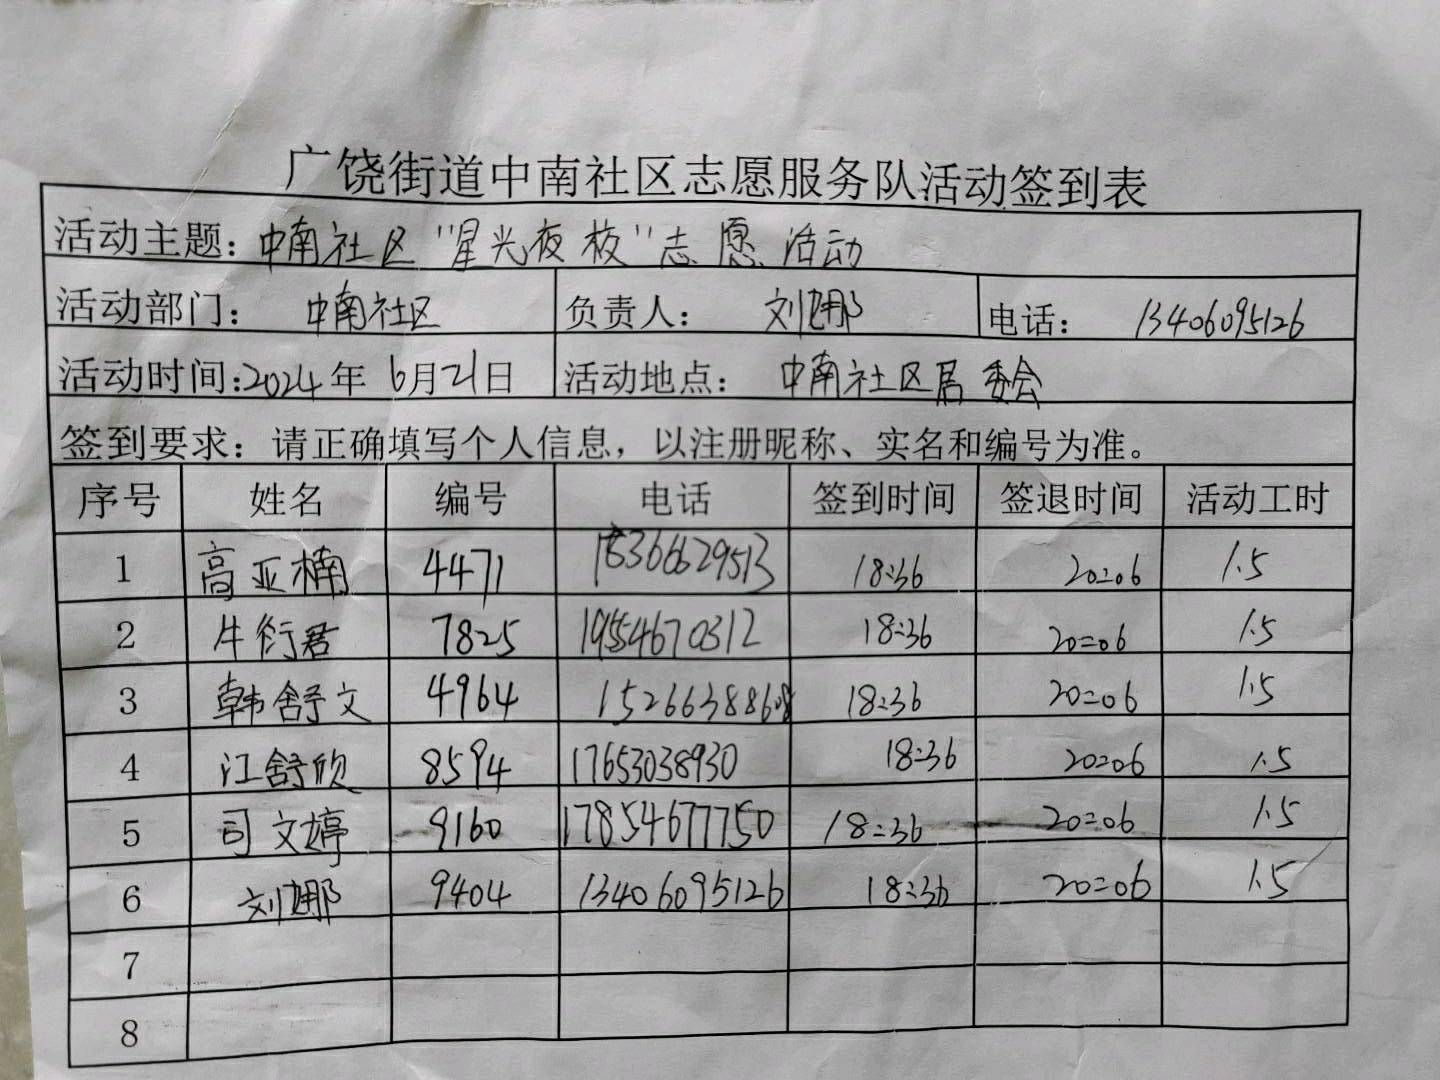 广饶街道中南社区志愿服务队活动签到表
活动主题：中南社区“星光夜校”志愿活动
活动部门：中南社区 负责人：刘娜 电话：13406095126
活动时间：2024年6月21日 活动地点：中南社区居委会
签到要求：请正确填写个人信息，以注册昵称、实名和编号为准。
序号 姓名 编号 电话 签到时间 签退时间 活动工时
1 高亚楠 4471 15366629513 18:36 20:06 1.5
2 牛衍君 7825 19554670312 18:36 20:06 1.5
3 韩舒文 4964 15266388608 18:36 20:06 1.5
4 江舒欣 8594 17653038930 18:36 20:06 1.5
5 司文婷 9160 17854677750 18:36 20:06 1.5
6 刘娜 9404 13406095126 18:36 20:06 1.5
7
8